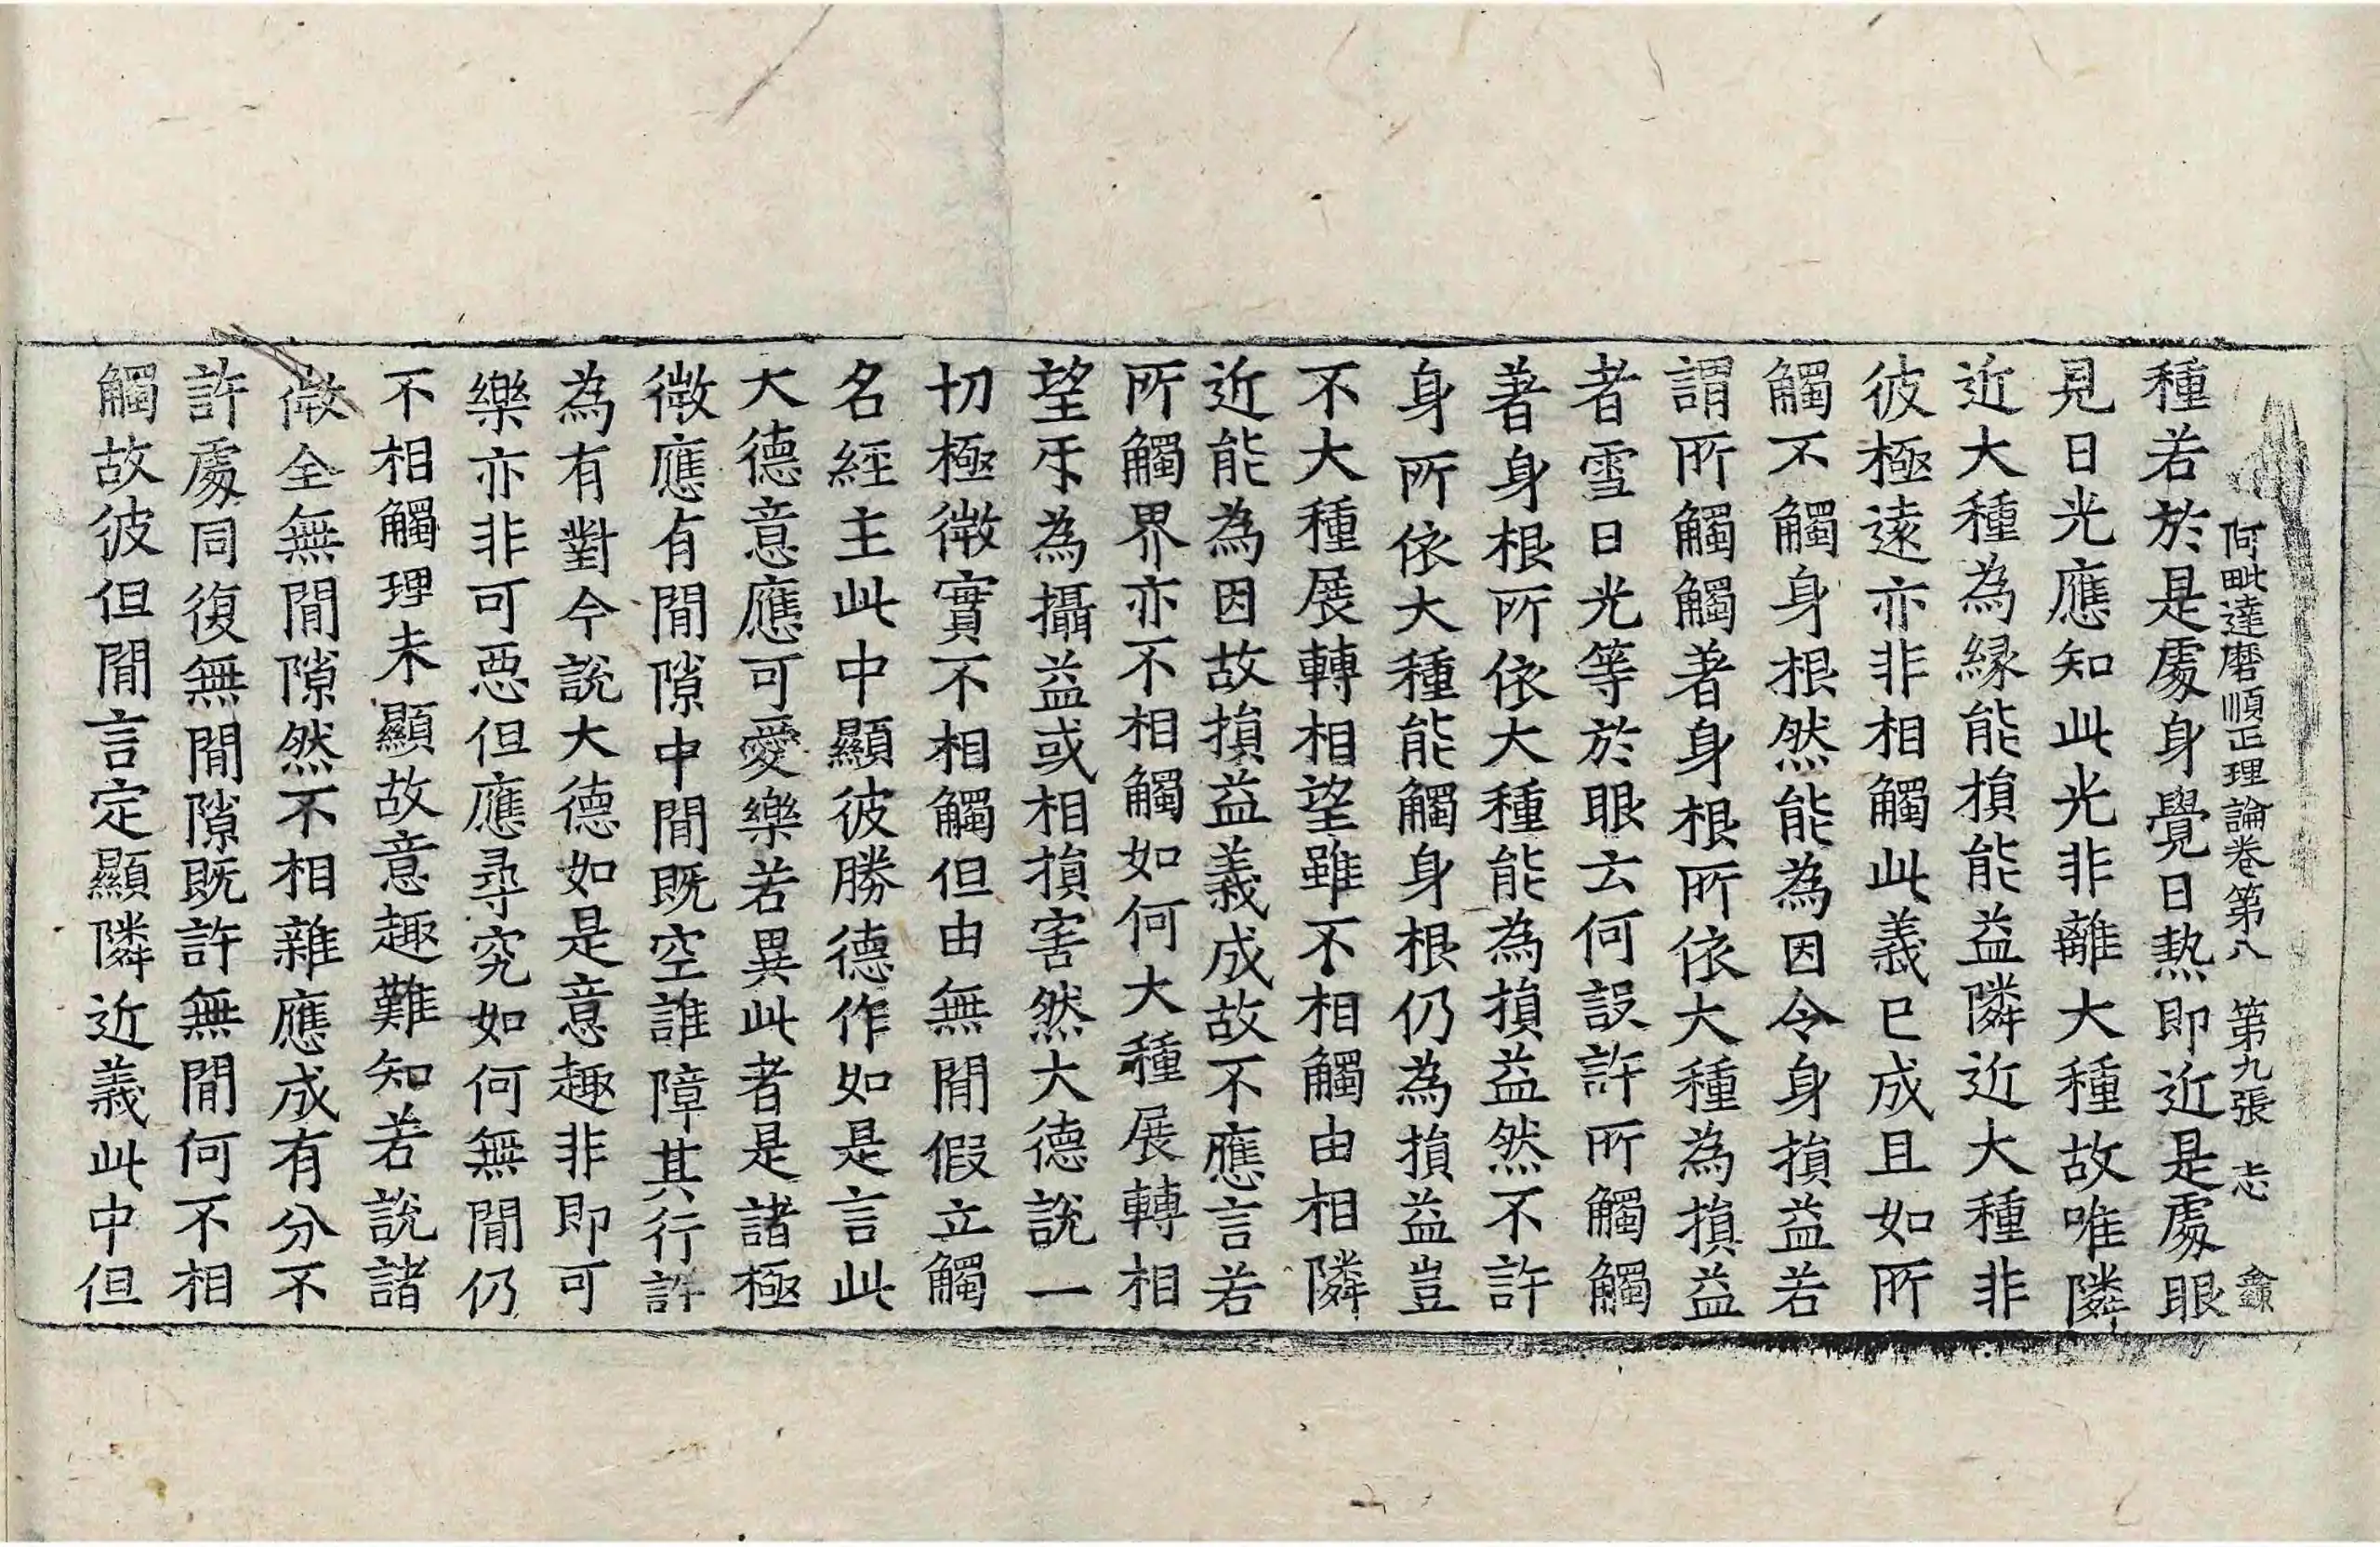 何毗達磨順正理論卷第八　第九張　志　鑫
種若於是處身覺日熱即近是處眼
見日光應知此光非離大種故唯隣
近大種為緣能損能益隣近大種非
彼極遠亦非相觸此義已成且如所
觸不觸身根然能為因令身損益若
謂所觸觸著身根所依大種為損益
者雪日光等於眼云何設許所觸觸
著身根所依大種能為損益然不許
身所依大種能觸身根仍為損益豈
不大種展轉相望雖不相觸由相隣
近能為因故損益義成故不應言若
所觸界亦不相觸如何大種展轉相
望㸦為攝益或相損害然大德說一
切極微實不相觸但由無間假立觸
名經主此中顯彼勝德作如是言此
大德意應可愛樂若異此者是諸極
微應有間隙中間既空誰障其行許
為有對今說大德如是意趣非即可
樂亦非可惡但應尋究如何無間仍
不相觸理未顯故意趣難知若說諸
微全無間隙然不相雜應成有分不
許處同復無間隙既許無間何不相
觸故彼但間言定顯隣近義此中但